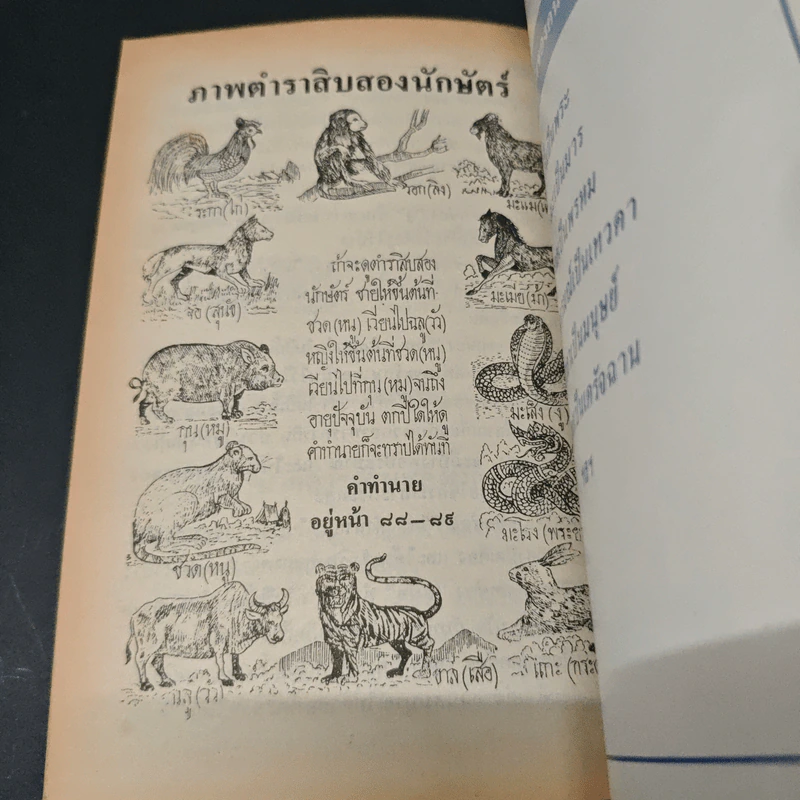 ภาพตำราสิบสองนักษัตร์
ระกา(ไก่)
วอก(ลิง)
มะแม(
จอ(สุนัข)
มะเมีย(ม้า)
ถ้าจะดูตำราสิบสอง
นักษัตร์ ชายให้ขึ้นต้นที่
ชวด(หนู) เวียนไปฉลู(วัว)
หญิงให้ขึ้นต้นที่ชวด(หนู)
เวียนไปที่กุน(หมู)จนถึง
อายุปัจจุบัน ตกปีใดให้ดู
คำทำนายก็จะทราบได้ทันที
คำทำนาย
อยู่หน้า ๘๘-๘๙
กุน(หมู)
มะเส็ง(งู)
ชวด(หนู)
มะโรง(พระย
ฉลู(วัว)
ขาล(เสือ)
เถาะ(กระ
เป็นพระ
เป็นมาร
เป็นพรหม
เป็นเทวดา
เป็นมนุษย์